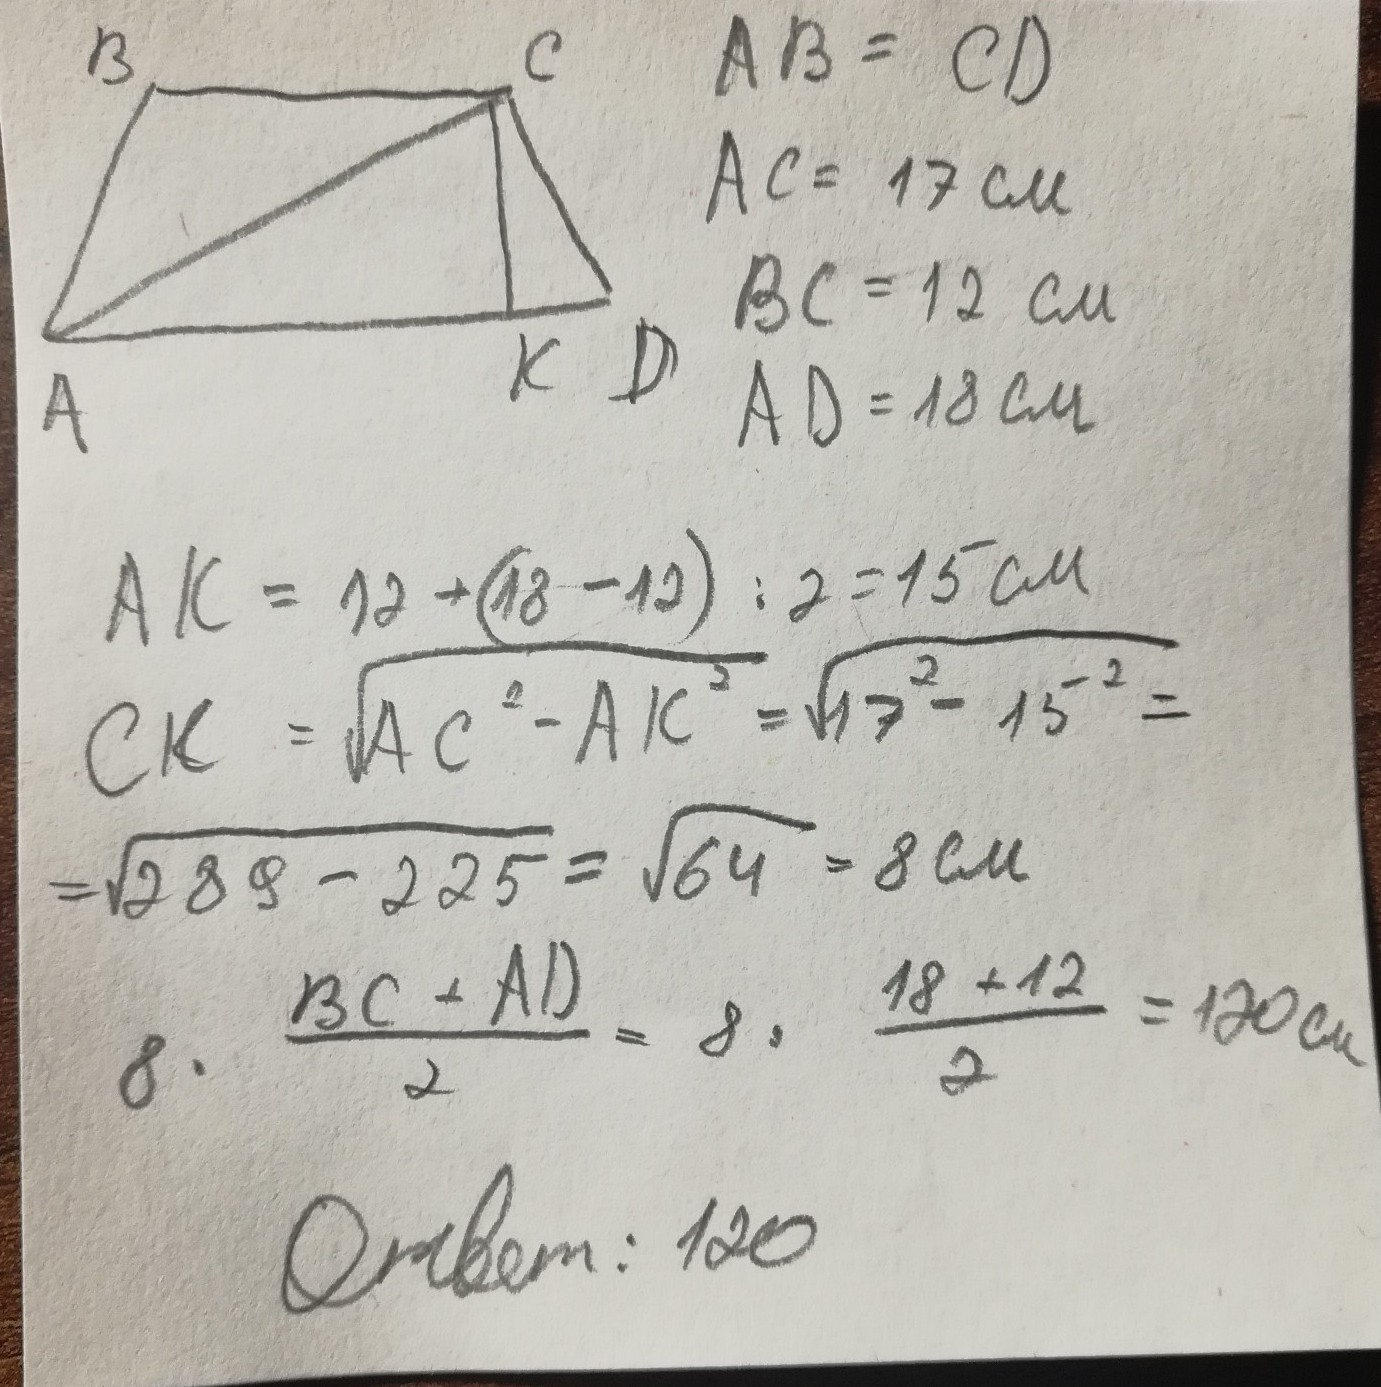 B C AB = CD
AC = 17 см
BC = 12 см
A K D AD = 18 см
AK = 12 + (18 - 12) : 2 = 15 см
CK = √AC² - AK² = √17² - 15² =
= √289 - 225 = √64 = 8 см
8 · (BC + AD)/2 = 8 · (18 + 12)/2 = 120 см
Ответ: 120